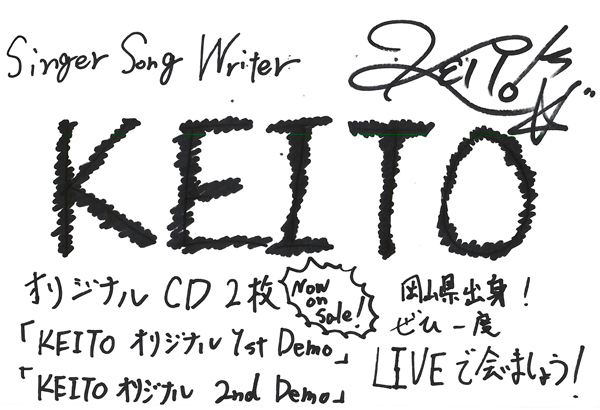 Singer Song Writer
KEITO
KEITO
オリジナル CD 2枚
Now on Sale!
「KEITO オリジナル 1st Demo」
「KEITO オリジナル 2nd Demo」
岡山県出身!
ぜひ一度
LIVEで会いましょう!